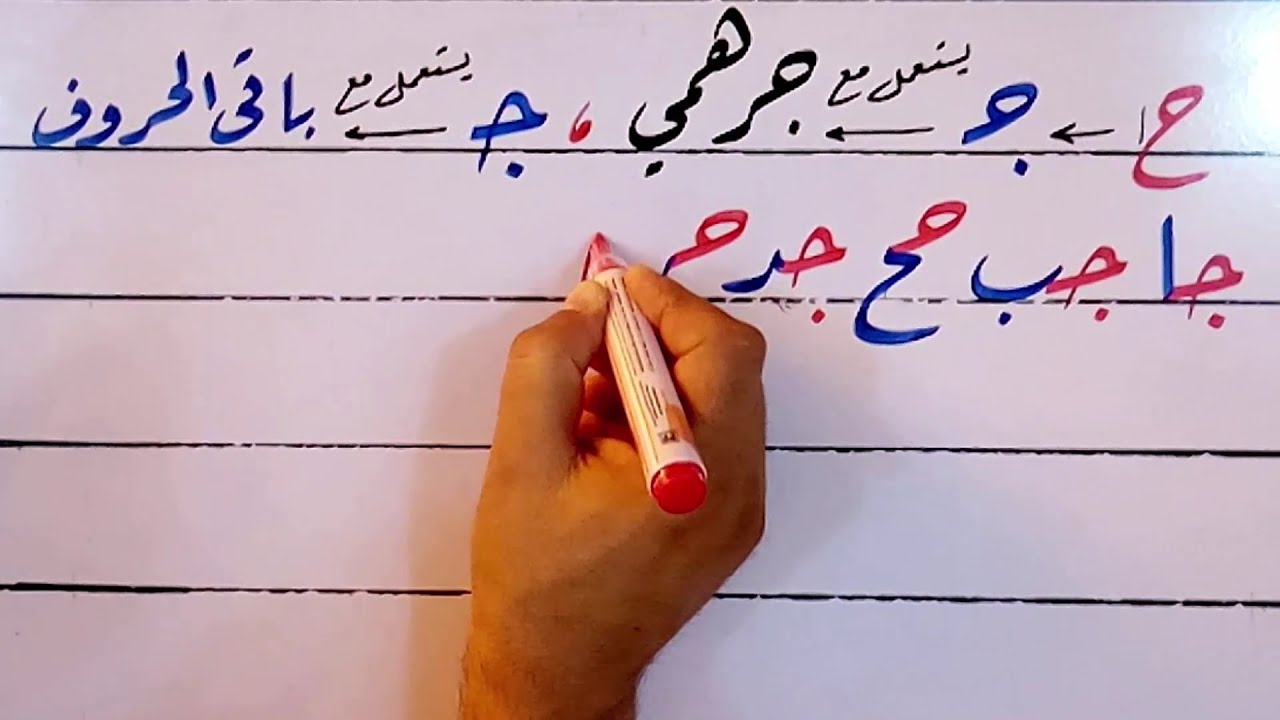 ح ← جـ يستعمل مع ← جرهمي ، جـ يستعمل مع ← باقى الحروف
جا جب حح جد حـ